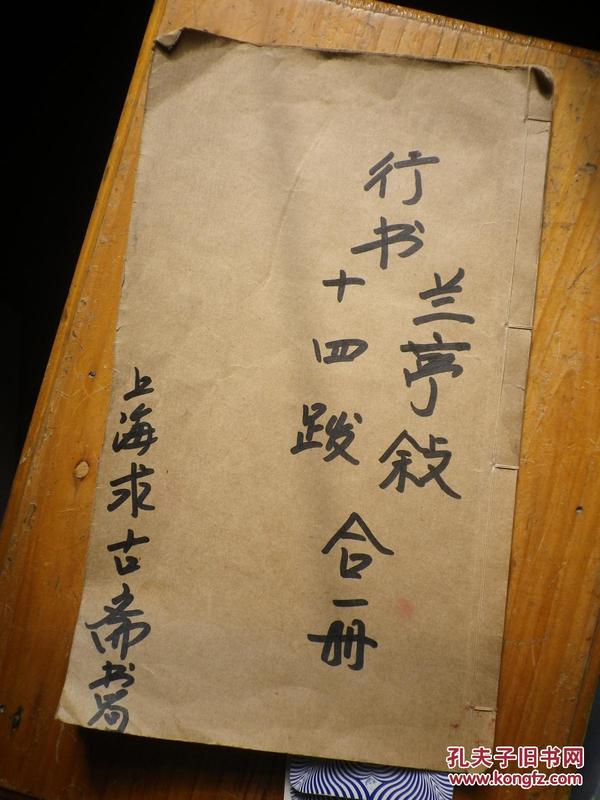 行书
兰亭敘
十四跋
合一册
上海求古斋书局
孔夫子旧书网
www.kongfz.com